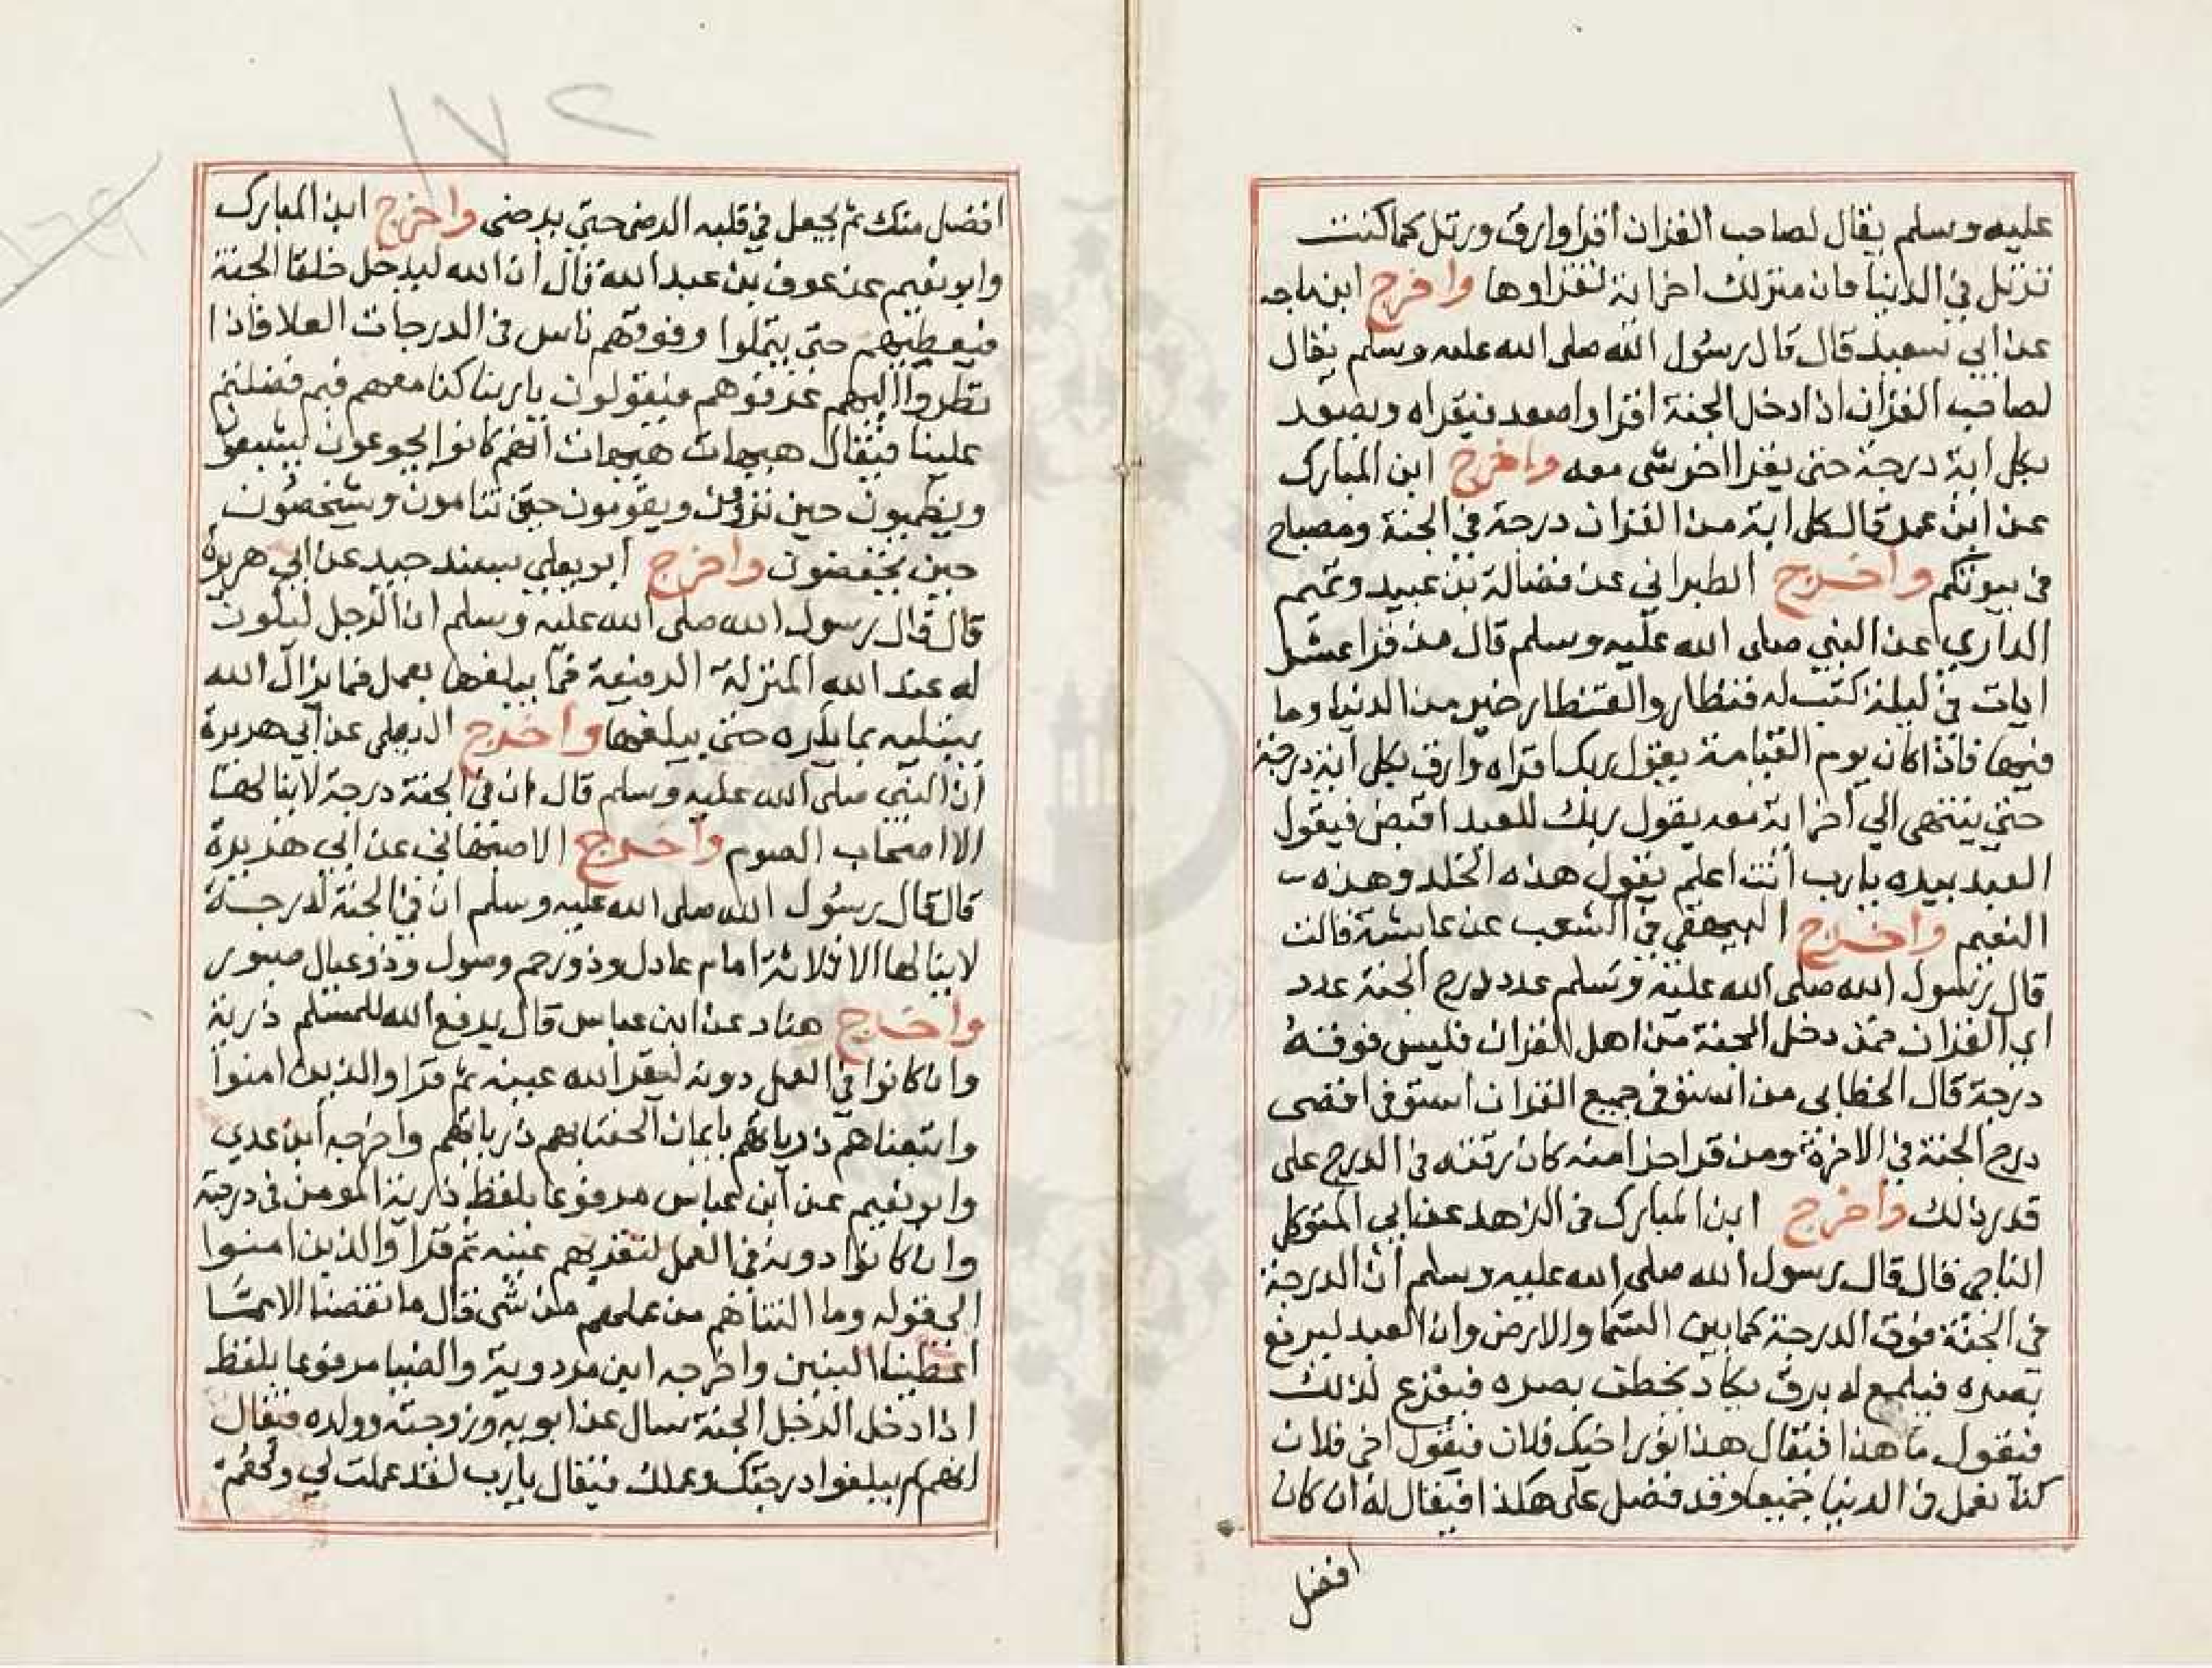 عليه وسلم يقال لصاحب القران اقرا وارق ورتل كما كنت
ترتل في الدنيا فان منزلك اخر اية تقراوها واخرج ابن ماجه
عن ابي سعيد قال قال رسول الله صلى الله عليه وسلم يقال
لصاحب القران اذا دخل الجنة اقرا واصعد فيقراه ويصعد
بكل اية درجة حتى يقرا اخر شى معه واخرج ابن المبارك
عن ابن عمر قال كل اية من القران درجة في الجنة ومصباح
في بيوتكم واخرج الطبراني عن فضالة بن عبيد وتميم
الداري عن النبي صلى الله عليه وسلم قال من قرا عشر
ايات في ليلة كتب له قنطار والقنطار خير من الدنيا وما
فيها فاذا كان يوم القيامة يقول ربك اقراه وارق بكل آية درجة
حتي ينتهى الي اخر اية معه يقول ربك للعبد اقبض فيقول
العبد بيده يارب أنت اعلم يقول هذه الخلد وهذه
النعيم واخرج البيهقي في الشعب عن عايشة قالت
قال رسول الله صلى الله عليه وسلم عدد درج الجنة عدد
اي القران فمن دخل الجنة من اهل القران فليس فوقه
درجة قال الخطابي من استوفى جميع القران استوفى اقصى
درج الجنة في الاخرة ومن قرا جزا منه كان رقيه في الدرج على
قدر ذلك واخرج ابن المبارك في الزهد عن ابي المتوكل
الناجي قال قال رسول الله صلى الله عليه وسلم أن الدرجة
في الجنة فوق الدرجة كما بين السما والارض وان العبد ليرفع
بصره فيلمع له برق يكاد يخطف بصره فيفزع لذلك
فيقول ما هذا فيقال هذا نور اخيك فلان فيقول اخى فلان
كنا نعمل في الدنيا جميعا وقد فضل على هكذا فيقال له أن كان
افضل
افضل منك ثم يجعل في قلبه الرضى حتى يرضى واخرج ابن المبارك
وابو نعيم عن عوف بن عبد الله قال أن الله ليدخل خلقا الجنة
فيعطيهم حتى يتملوا وفوقهم ناس في الدرجات العلا فاذا
نظروا اليهم عرفوهم فيقولون ياربنا كنا معهم فبم فضلتهم
علينا فيقال هيهات هيهات انهم كانوا يجوعون
ويظميون حين تروون ويقومون حين تنامون ويشخصون
حين تخفضون واخرج ابو يعلي بسند جيد عن ابي هريرة
قال قال رسول الله صلى الله عليه وسلم ان الرجل ليكون
له عند الله المنزلة الرفيعة فما يبلغها بعمل فما يزال الله
يبتليه بما يكره حتى يبلغها واخرج الديلمي عن ابي هريرة
ان النبي صلى الله عليه وسلم قال ان في الجنة درجة لا ينالها
الا اصحاب الهموم واخرج الاصبهاني عن ابي هريرة
قال قال رسول الله صلى الله عليه وسلم ان في الجنة لدرجة
لا ينالها الا ثلاثة امام عادل وذو رحم وصول وذو عيال صبور
واخرج هناد عن ابن عباس قال يرفع الله للمسلم ذرية
وان كانوا في العمل دونه ليقر الله عينه ثم قرا والذين امنوا
واتبعناهم ذرياتهم بايمان الحقنا بهم ذرياتهم واخرجه ابن عدي
وابو نعيم عن ابن عباس مرفوعا بلفظ ذرية المومن في درجته
وان كانوا دونه في العمل لتقر بهم عينه ثم قرا والذين امنوا
الى قوله وما التناهم من عملهم من شى قال ما نقصنا الابا
اعطينا البنين واخرجه ابن مردوية والضيا مرفوعا بلفظ
اذا دخل الرجل الجنة سال عن ابويه وزوجته وولده فيقال
انهم لم يبلغوا درجتك وعملك فيقال يارب لقد عملت لي ولهم